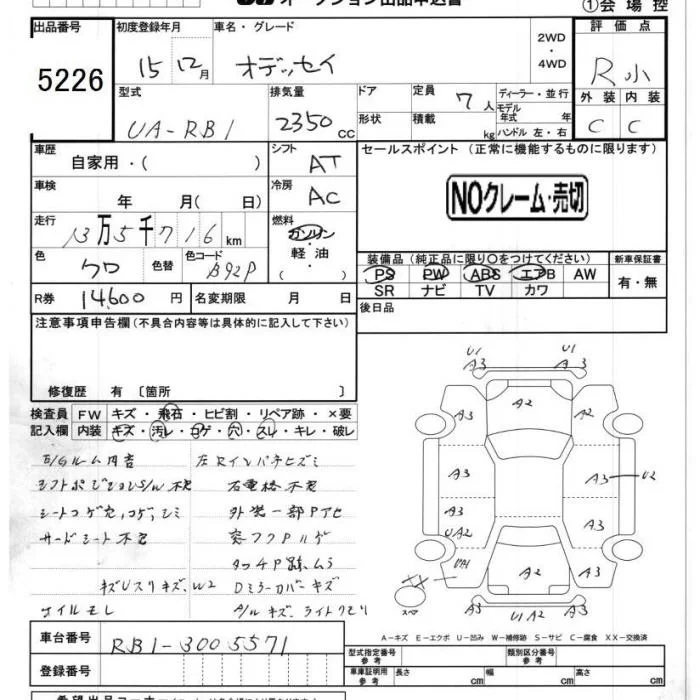 オークション出品申込書
①会場控
出品番号 初度登録年月 車名・グレード 2WD・4WD 評価点
5226 15 12月 オデッセイ R小
型式 排気量 ドア 定員 7人 ディーラー・並行 外装 内装
UA-RB1 2350cc 形状 積載 kg モデル年式 年 ハンドル 左・右 C C
車歴 自家用・( ) シフト AT セールスポイント(正常に機能するものに限ります)
車検 年 月( 日) 冷房 AC NOクレーム・売切
走行 13万5千716km 燃料 ガソリン・軽油・( )
色 クロ 色替 色コード B92P 装備品(純正品に限り○をつけてください) 新車保証書
PS PW ABS エアB AW 有・無
SR ナビ TV カワ
R券 14600円 名変期限 月 日 後日品
注意事項申告欄(不具合内容等は具体的に記入して下さい)
修復歴 有〔箇所 〕
検査員 FW キズ・飛石・ヒビ割・リペア跡・×要
記入欄 内装 キズ・汚レ・コゲ・穴・スレ・キレ・破レ
E/Gルーム内音 左Rインパネヒズミ
シフトポジションS/W不良
シートコゲ穴,コゲ,シミ 外装一部Pアセ
サードシート不良
タッチP跡,ムラ
W2 Dミラーカバーキズ
オイルモレ A/Wキズ,ライトクモリ
U1 A3 U1 A3
A3 A2 A2
A3 A3 U2
A3 A3
UA2
UA1 A2 A3
スペア A3 U1 A2 A3
A-キズ E-エクボ U-凹み W-補修跡 S-サビ C-腐食 XX-交換済
車台番号 RB1-3005571 型式指定番号 参考 類別区分番号 参考
登録番号 車庫証明用 参考 長さ cm 幅 cm 高さ cm